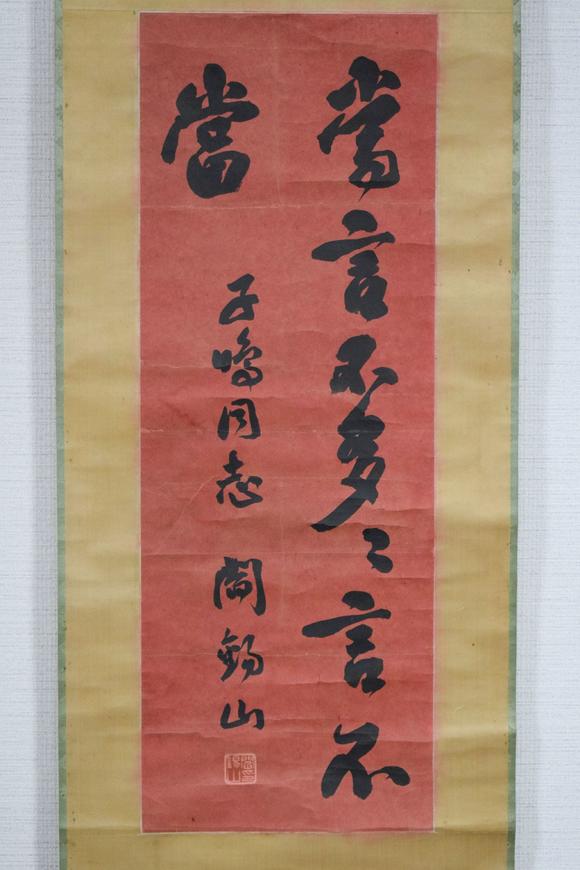 當言不多〻言不
當
子鳴同志
閻錫山